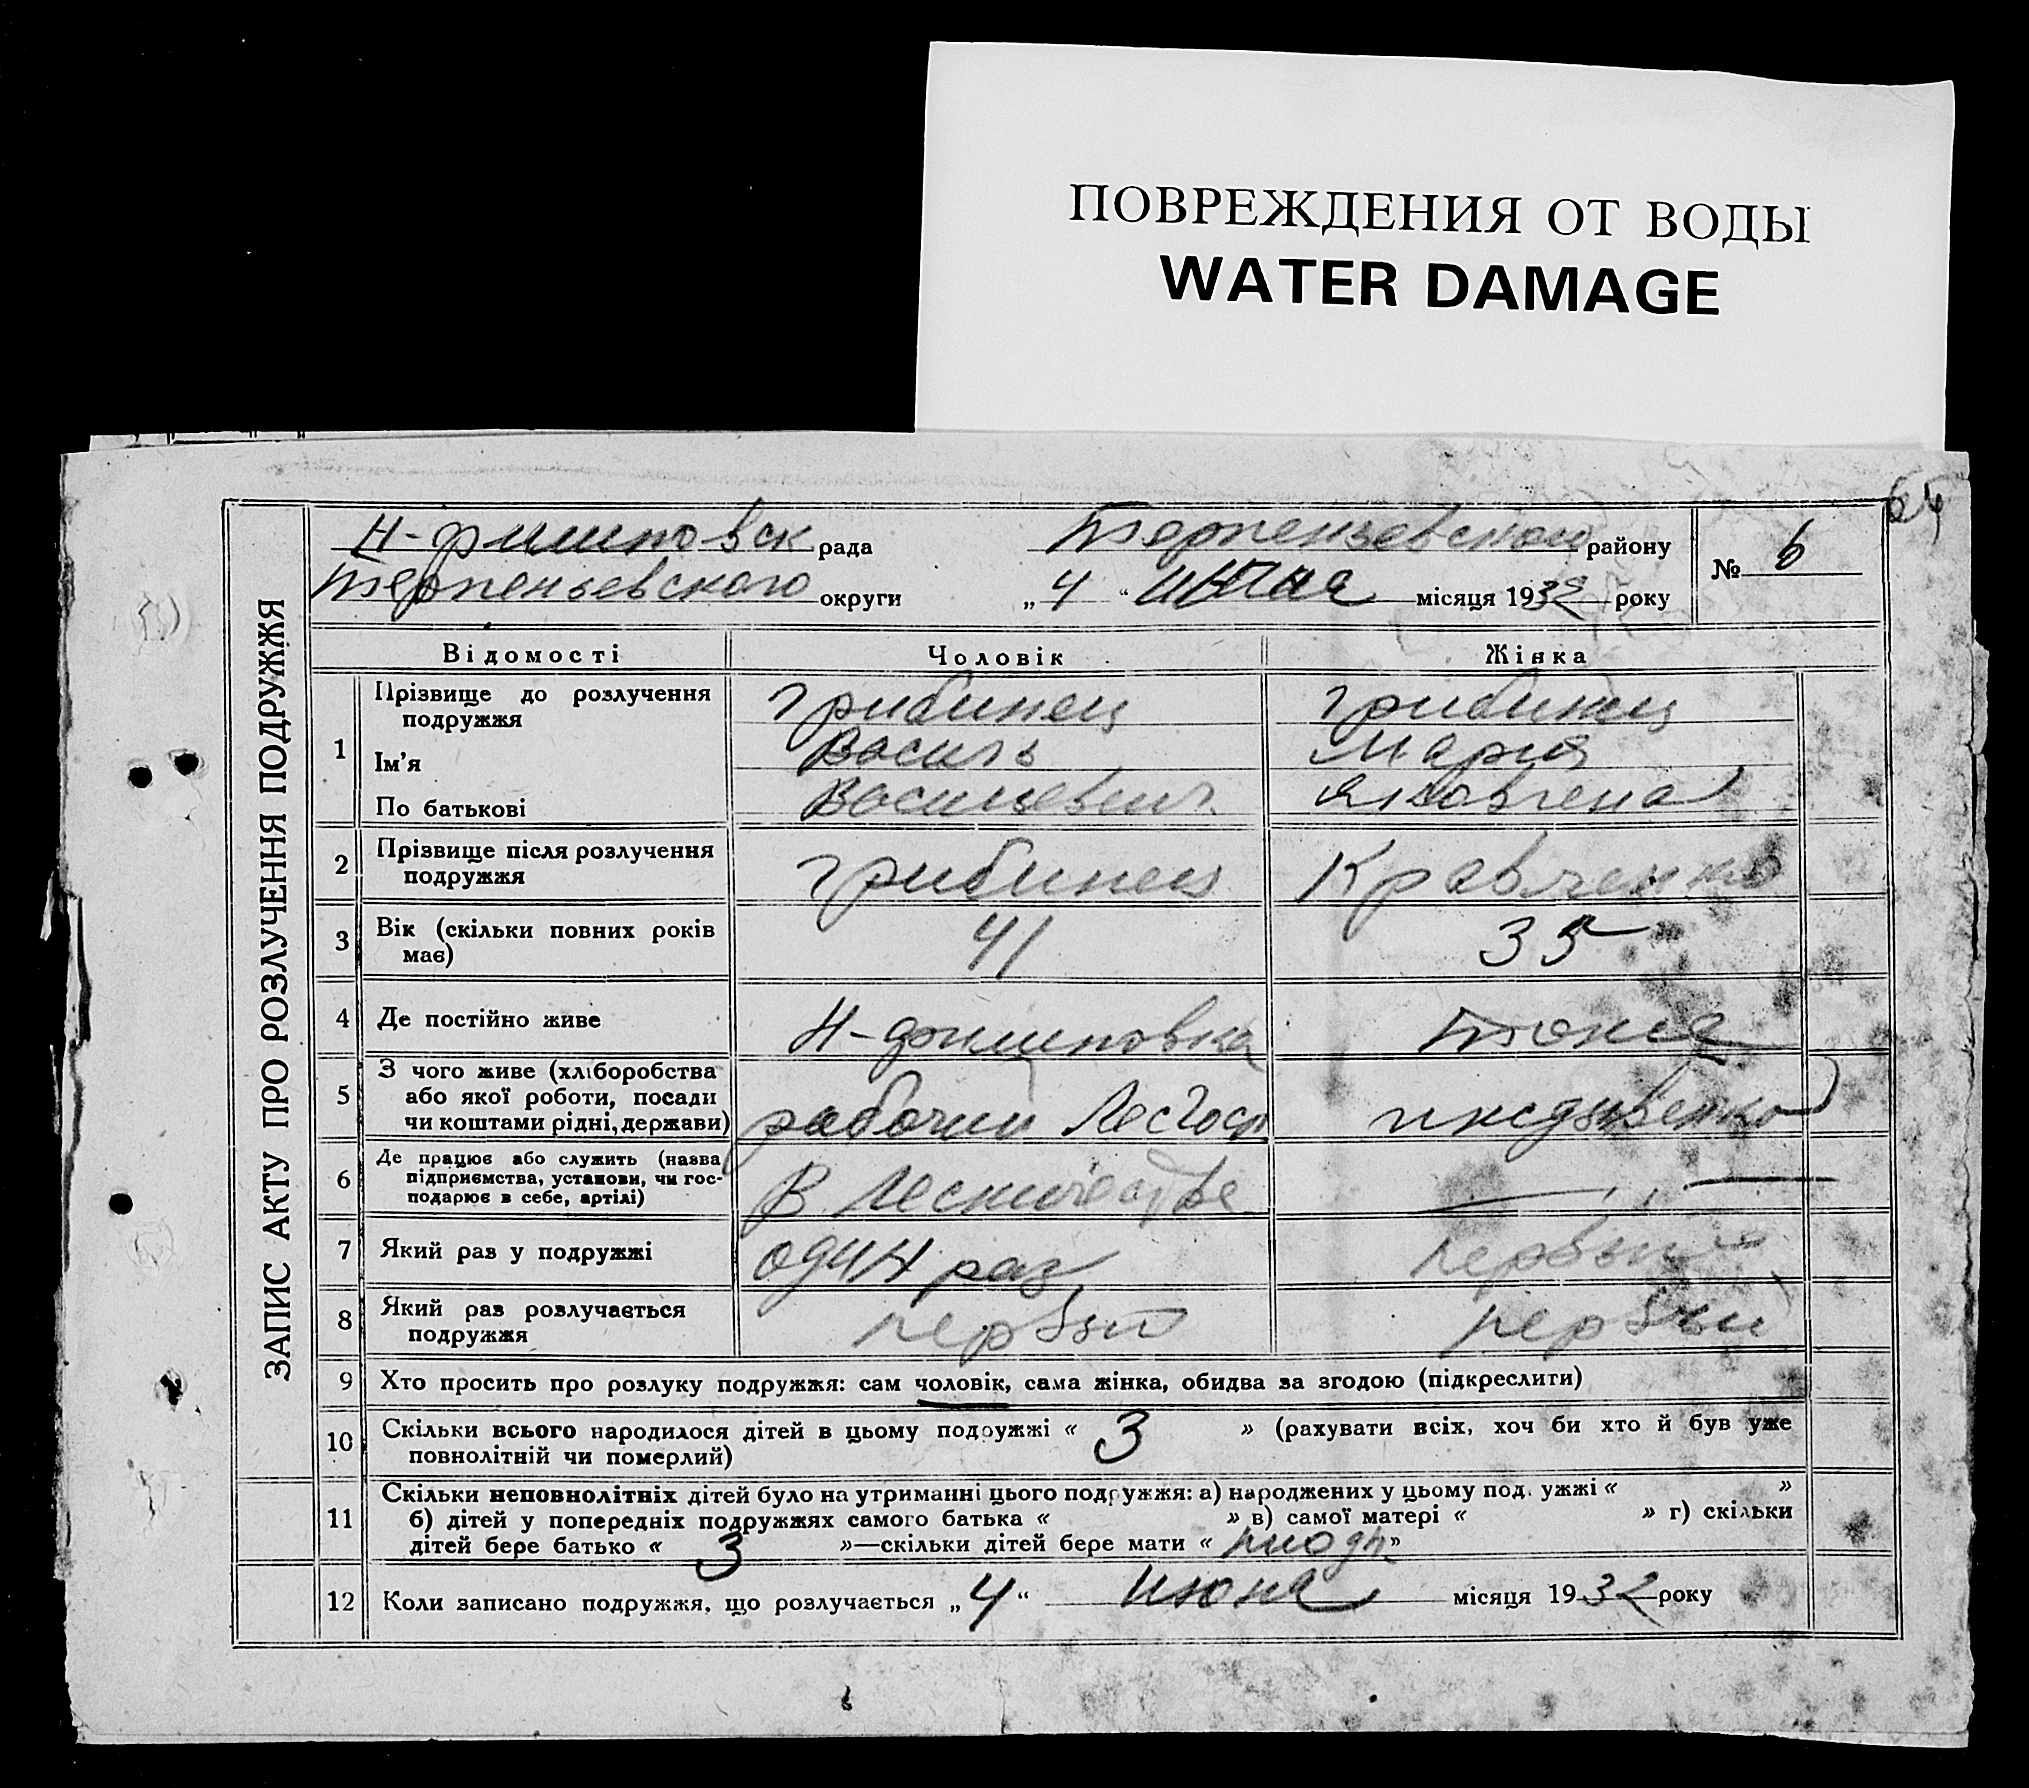 ПОВРЕЖДЕНИЯ ОТ ВОДЫ
WATER DAMAGE
64
ЗАПИС АКТУ ПРО РОЗЛУЧЕННЯ ПОДРУЖЖЯ
Н-филиповск рада Терпеньевского району
№ 6
Терпеньевского округи „4“ июня місяця 1932 року
Відомості Чоловік Жінка
1 Прізвище до розлучення подружжя Грибинец Грибинец
Ім’я Василь Мария
По батькові Васильевич Яковлена
2 Прізвище після розлучення подружжя Грибинец Кравченко
3 Вік (скільки повних років має) 41 35
4 Де постійно живе Н-филиповка
5 З чого живе (хліборобства або якої роботи, посади чи коштами рідні, держави) рабочий Лесгосп иждивенка
6 Де працює або служить (назва підприємства, установи, чи господарює в себе, артілі) В Лесничестве — „ —
7 Який раз у подружжі один раз первый
8 Який раз розлучається подружжя первый первый
9 Хто просить про розлуку подружжя: сам чоловік, сама жінка, обидва за згодою (підкреслити)
10 Скільки всього народилося дітей в цьому подружжі « 3 » (рахувати всіх, хоч би хто й був уже
повнолітній чи померлий)
11 Скільки неповнолітніх дітей було на утриманні цього подружжя: а) народжених у цьому под. ужжі « »
б) дітей у попередніх подружжях самого батька « » в) самої матері « » г) скільки
дітей бере батько « 3 »—скільки дітей бере мати « »
12 Коли записано подружжя, що розлучається „4“ июня місяця 1932 року